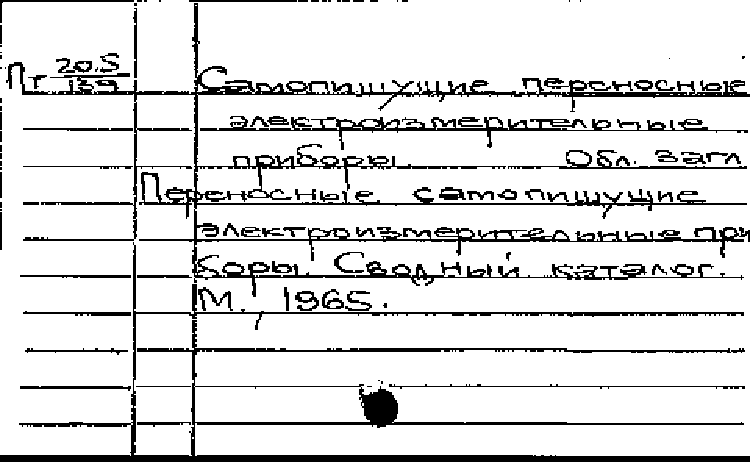 Пт 20.5/139
Самопишущие переносные
электроизмерительные
приборы. Обл. загл.
Переносные самопишущие
электроизмерительные при
боры. Сводный каталог.
М., 1965.